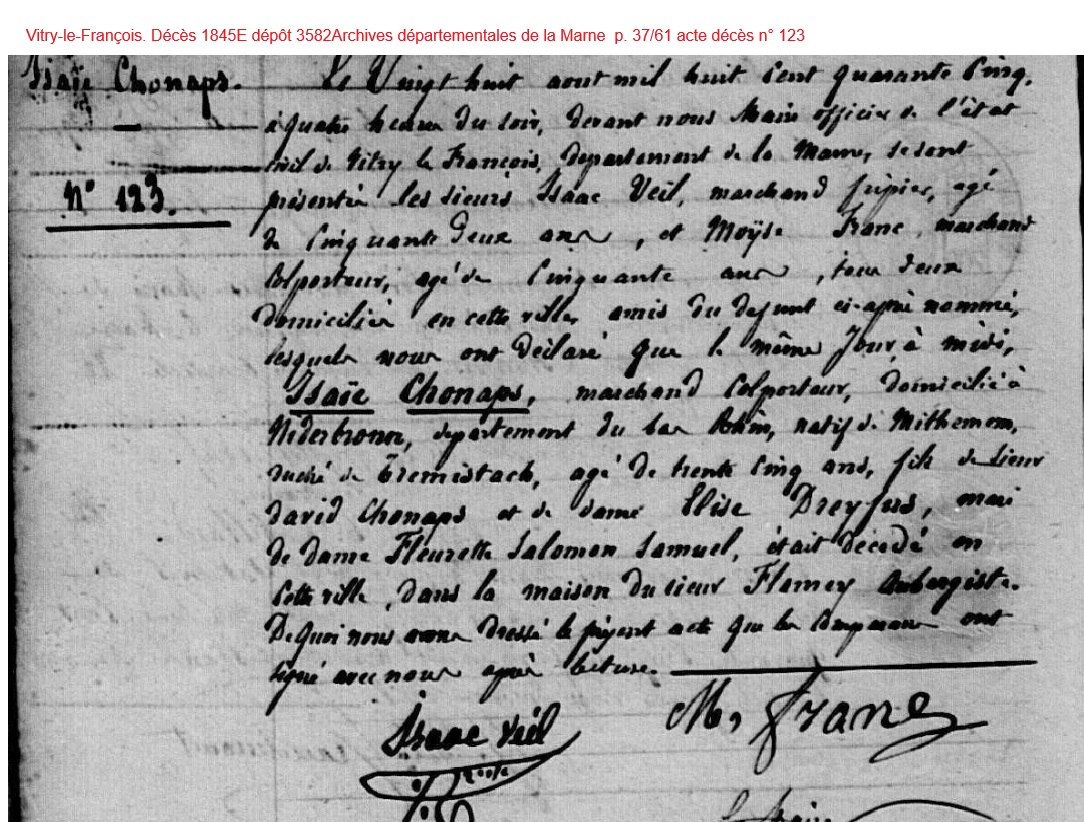 Vitry-le-François. Décès 1845E dépôt 3582Archives départementales de la Marne p. 37/61 acte décès n° 123
Isaïe Chonaps.
N° 123.
Le Vingt huit aout mil huit cent quarante Cinq,
à quatre heures du soir, devant nous Maire officier de l'état
civil de Vitry le François, département de la Marne, se sont
présentés les sieurs Isaac Veil, marchand fripier, agé
de Cinquante deux ans, et Moÿse Franc, marchand
Colporteur, agé de Cinquante ans, tous deux
domiciliés en cette ville, amis du défunt ci-après nommé,
lesquels nous ont déclaré que le même Jour, à midi,
Isaïe Chonaps, marchand Colporteur, domicilié à
Niderbronn, département du bas Rhin, natif de
duché de agé de trente Cinq ans, fils de sieur
David Chonaps et de dame Elise Dreyfus, mari
de dame Fleurette Salomon Samuel, était décédé en
Cette ville, dans la maison du sieur Flamey Aubergiste.
De quoi nous avons dressé le présent acte que les Comparans ont
signé avec nous après lecture.
Isaac Veil
M, Franc
Le Maire